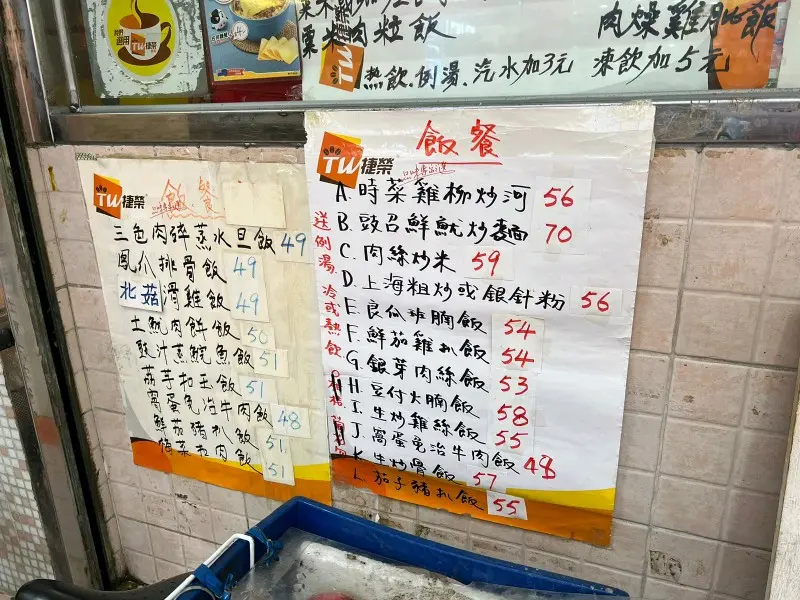 粟米肉粒飯
肉燥雞髀飯
TW
熱飲.例湯.汽水加3元 凍飲加5元
TW
TW捷榮
飯餐
三色肉碎蒸水旦飯 49
鳳爪排骨飯 49
北菇滑雞飯 49
土魷肉餅飯 50
豉汁蒸鯇魚飯 51
荔芋扣玉飯 51
窩蛋免冶牛肉飯 48
鮮茄豬扒飯 51
梅菜扣肉飯 51
TW捷榮
飯餐
A. 時菜雞柳炒河 56
B. 豉召鮮魷炒麵 70
C. 肉絲炒米 59
D. 上海粗炒或銀針粉 56
E. 良瓜班腩飯 54
F. 鮮茄雞扒飯 54
G. 銀芽肉絲飯 53
H. 豆付火腩飯 58
I. 生炒雞絲飯 55
J. 窩蛋免冶牛肉飯 48
K. 生炒骨飯 57
L. 茄子豬扒飯 55
送例湯 冷或熱飲